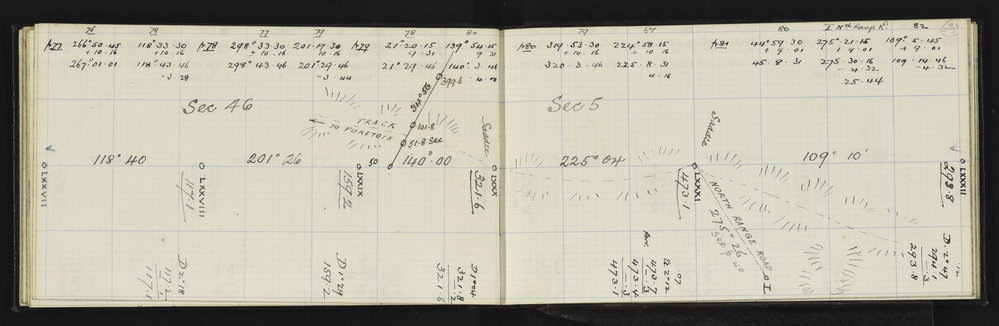 76
77
79
78
80
79
81
80
I Nth Range Rd
82
π77
266° 50. 45
118° 33. 30
π78
298° 33. 30
201. 19. 30
π79
21° 20. 15
139° 54. 15
+ 10. 16
+ 10. 16
+ 10. 16
+ 10. 16
9. 31
9. 31
267. 01. 01
118° 43. 46
298° 43. 46
201° 29. 46
21° 29. 46
140° 3. 46
- 3. 28
- 3. 44
π80
319. 53. 30
224° 58. 15
π81
44° 59. 30
275° 21. 15
109° 5. 45
+ 10. 16
10. 16
+ 9. 01
+ 9. 01
+ 9. 01
320. 3. 46
225. 8. 31
45. 8. 31
275. 30. 16
109. 14. 46
4. 16
- 4. 32
- 4. 32
25. 44
Sec 46
Sec 5
399.6
34° 56
101.8
51.8 Sec
50
TRACK
TO PUKETOIS
Saddle
Saddle
118° 40
201° 26
140° 00
225° 04
109° 10'
O LXXVII
O LXXVIII
117.1
O LXXIX
159.2
O LXXX
321.6
O LXXXI
473.1
O LXXXII
293.8
NORTH RANGE ROAD
275° 26
See p
O I
D 2° 18
117.1
D 1° 29
159.2
D 1° 04
321.8
.2
321.6
473.7
.3
473.4
.3
473.1
D. 2° 47
294.1
.3
293.8